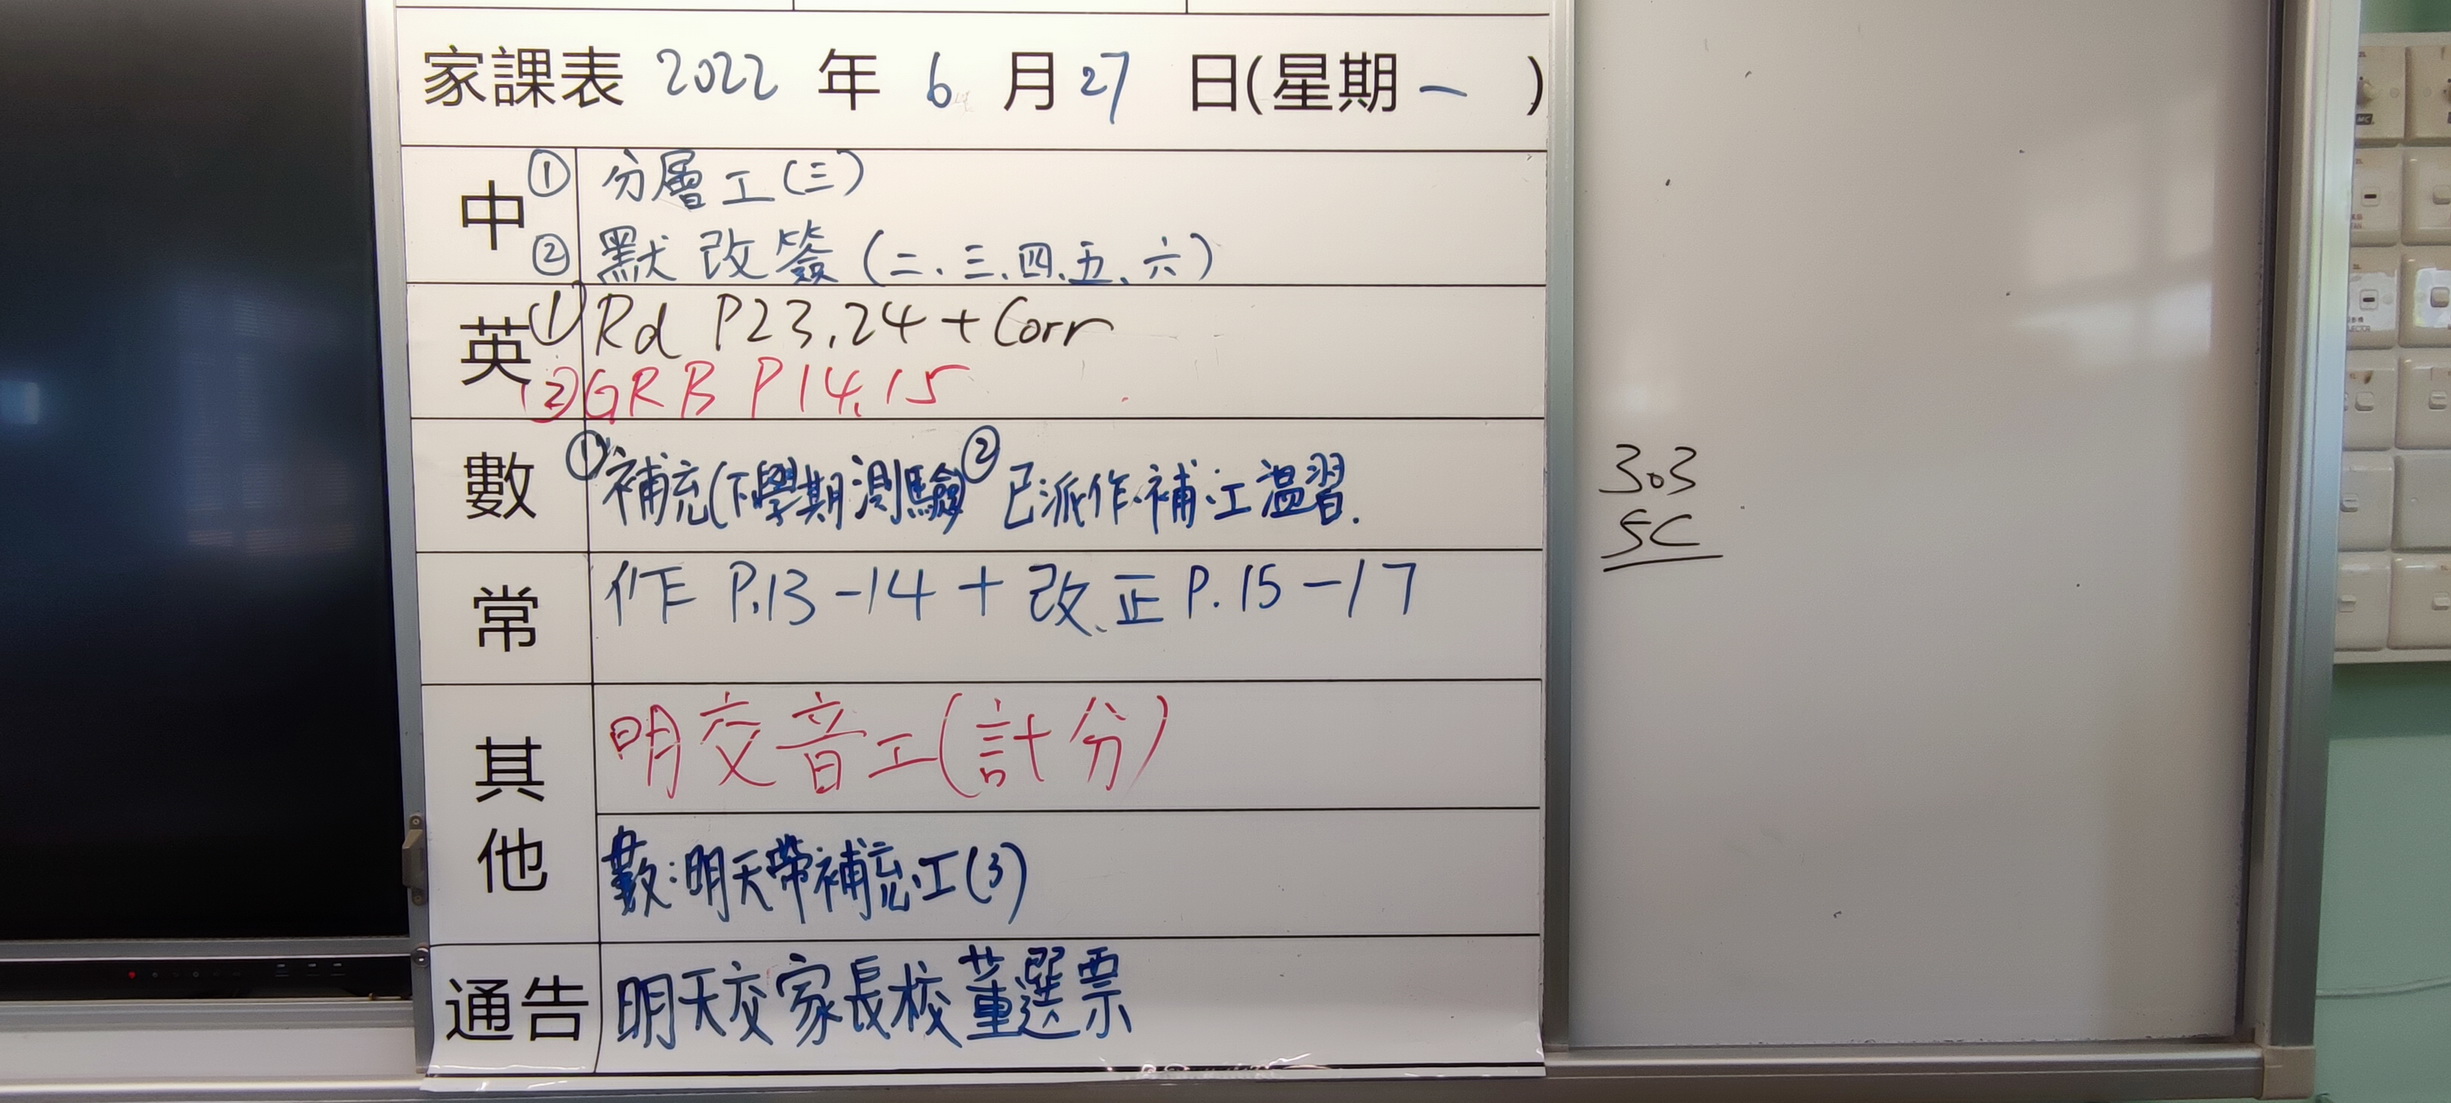 家課表 2022 年 6 月 27 日(星期一 )
中 ① 分層工(三)
② 默改簽(二、三、四、五、六)
英 ① Rd P23,24 + Corr
② GRB P14,15
數 ① 補充(下學期測驗) ② 已派作.補.工溫習.
常 作 P.13-14 + 改正 P.15-17
其他 明交音工(計分)
數:明天帶補充工(3)
通告 明天交家長校董選票
303
5C